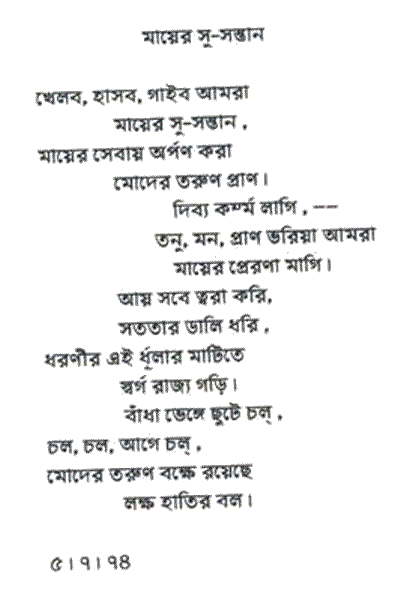 মায়ের সু-সন্তান
খেলব, হাসব, গাইব আমরা
মায়ের সু-সন্তান,
মায়ের সেবায় অর্পণ করা
মোদের তরুণ প্রাণ।
দিব্য কর্ম্ম লাগি, —
তনু, মন, প্রাণ ভরিয়া আমরা
মায়ের প্রেরণা মাগি।
আয় সবে ত্বরা করি,
সততার ডালি ধরি,
ধরণীর এই র্ধূলার মাটিতে
স্বর্গ রাজ্য গড়ি।
বাঁধা ভেঙ্গে ছুটে চল্,
চল, চল, আগে চল্,
মোদের তরুণ বক্ষে রয়েছে
লক্ষ হাতির বল।
৫।৭।৭৪